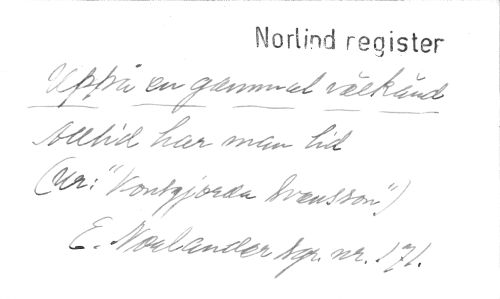 Norlind register
Uppå en gammal välkänd
Alltid har man tid
(Ur: "Konstgjorda Svensson")
E. Norlander Sgr. nr. 171.